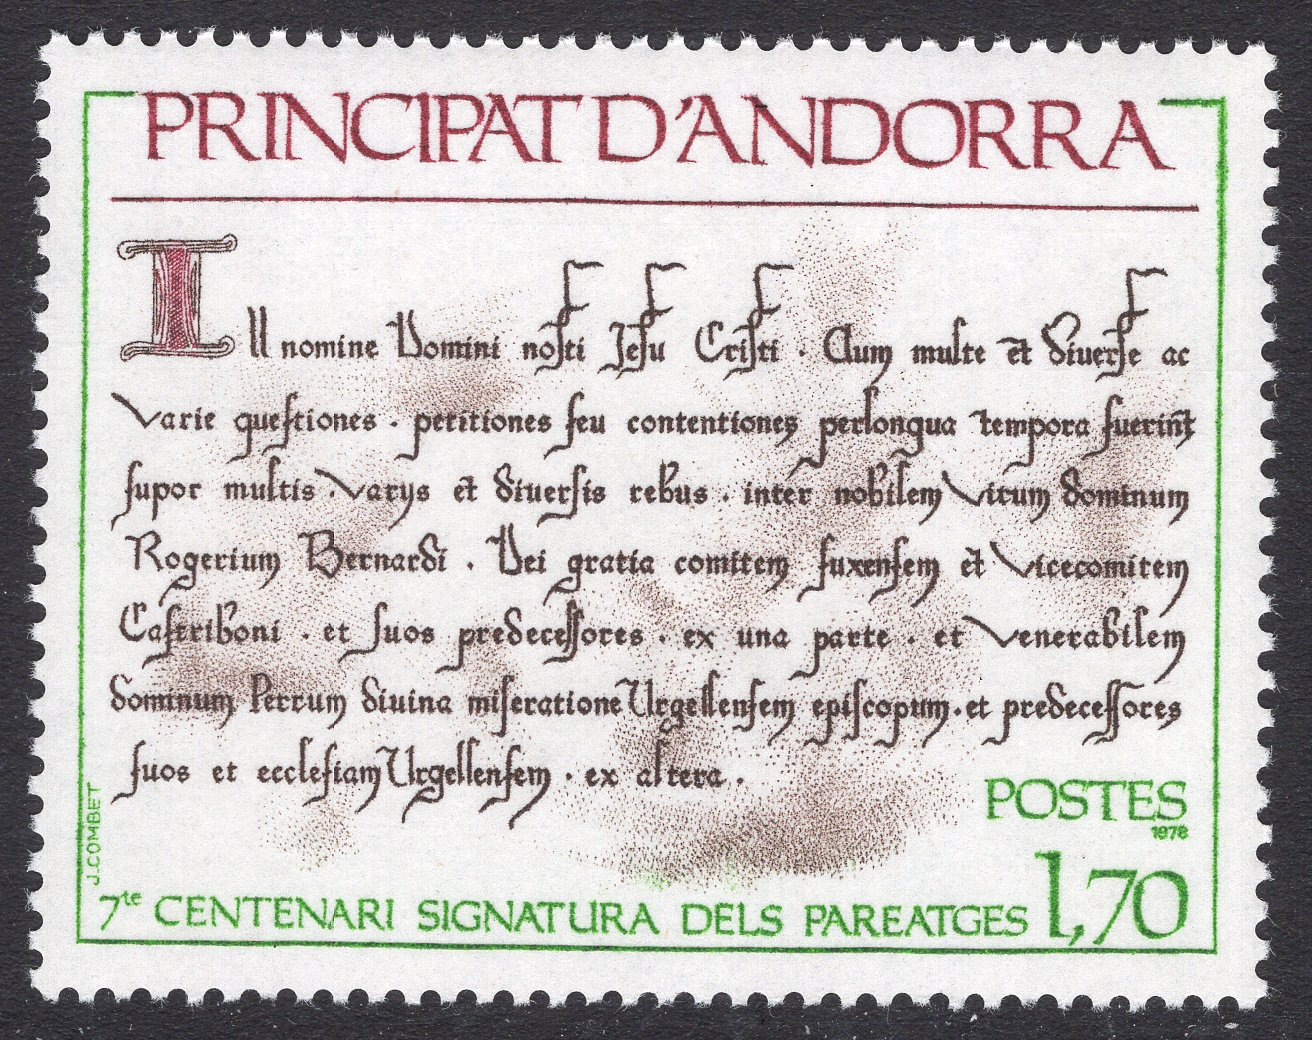 PRINCIPAT D'ANDORRA
In nomine Domini nosti Jesu Cristi . Cum multe et diverse ac
varie questiones . petitiones seu contentiones perlongua tempora fuerint
supor multis . varys et diversis rebus . inter nobilem virum dominum
Rogerium Bernardi . Dei gratia comitem fuxensem et vicecomitem
Castriboni . et suos predecessores . ex una parte . et venerabilem
dominum Petrum divina miseratione Urgellensem episcopum . et predecessores
suos et ecclesiam Urgellensem . ex altera .
POSTES
1978
1,70
7te CENTENARI SIGNATURA DELS PAREATGES
J. COMBET